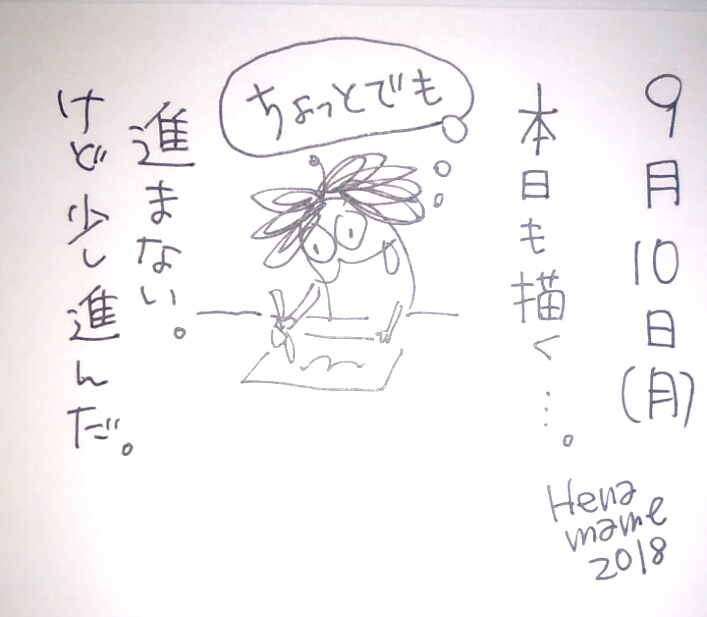 9月10日(月)
本日も描く…。
ちょっとでも
進まない。
けど少し進んだ。
Hena
mame
2018